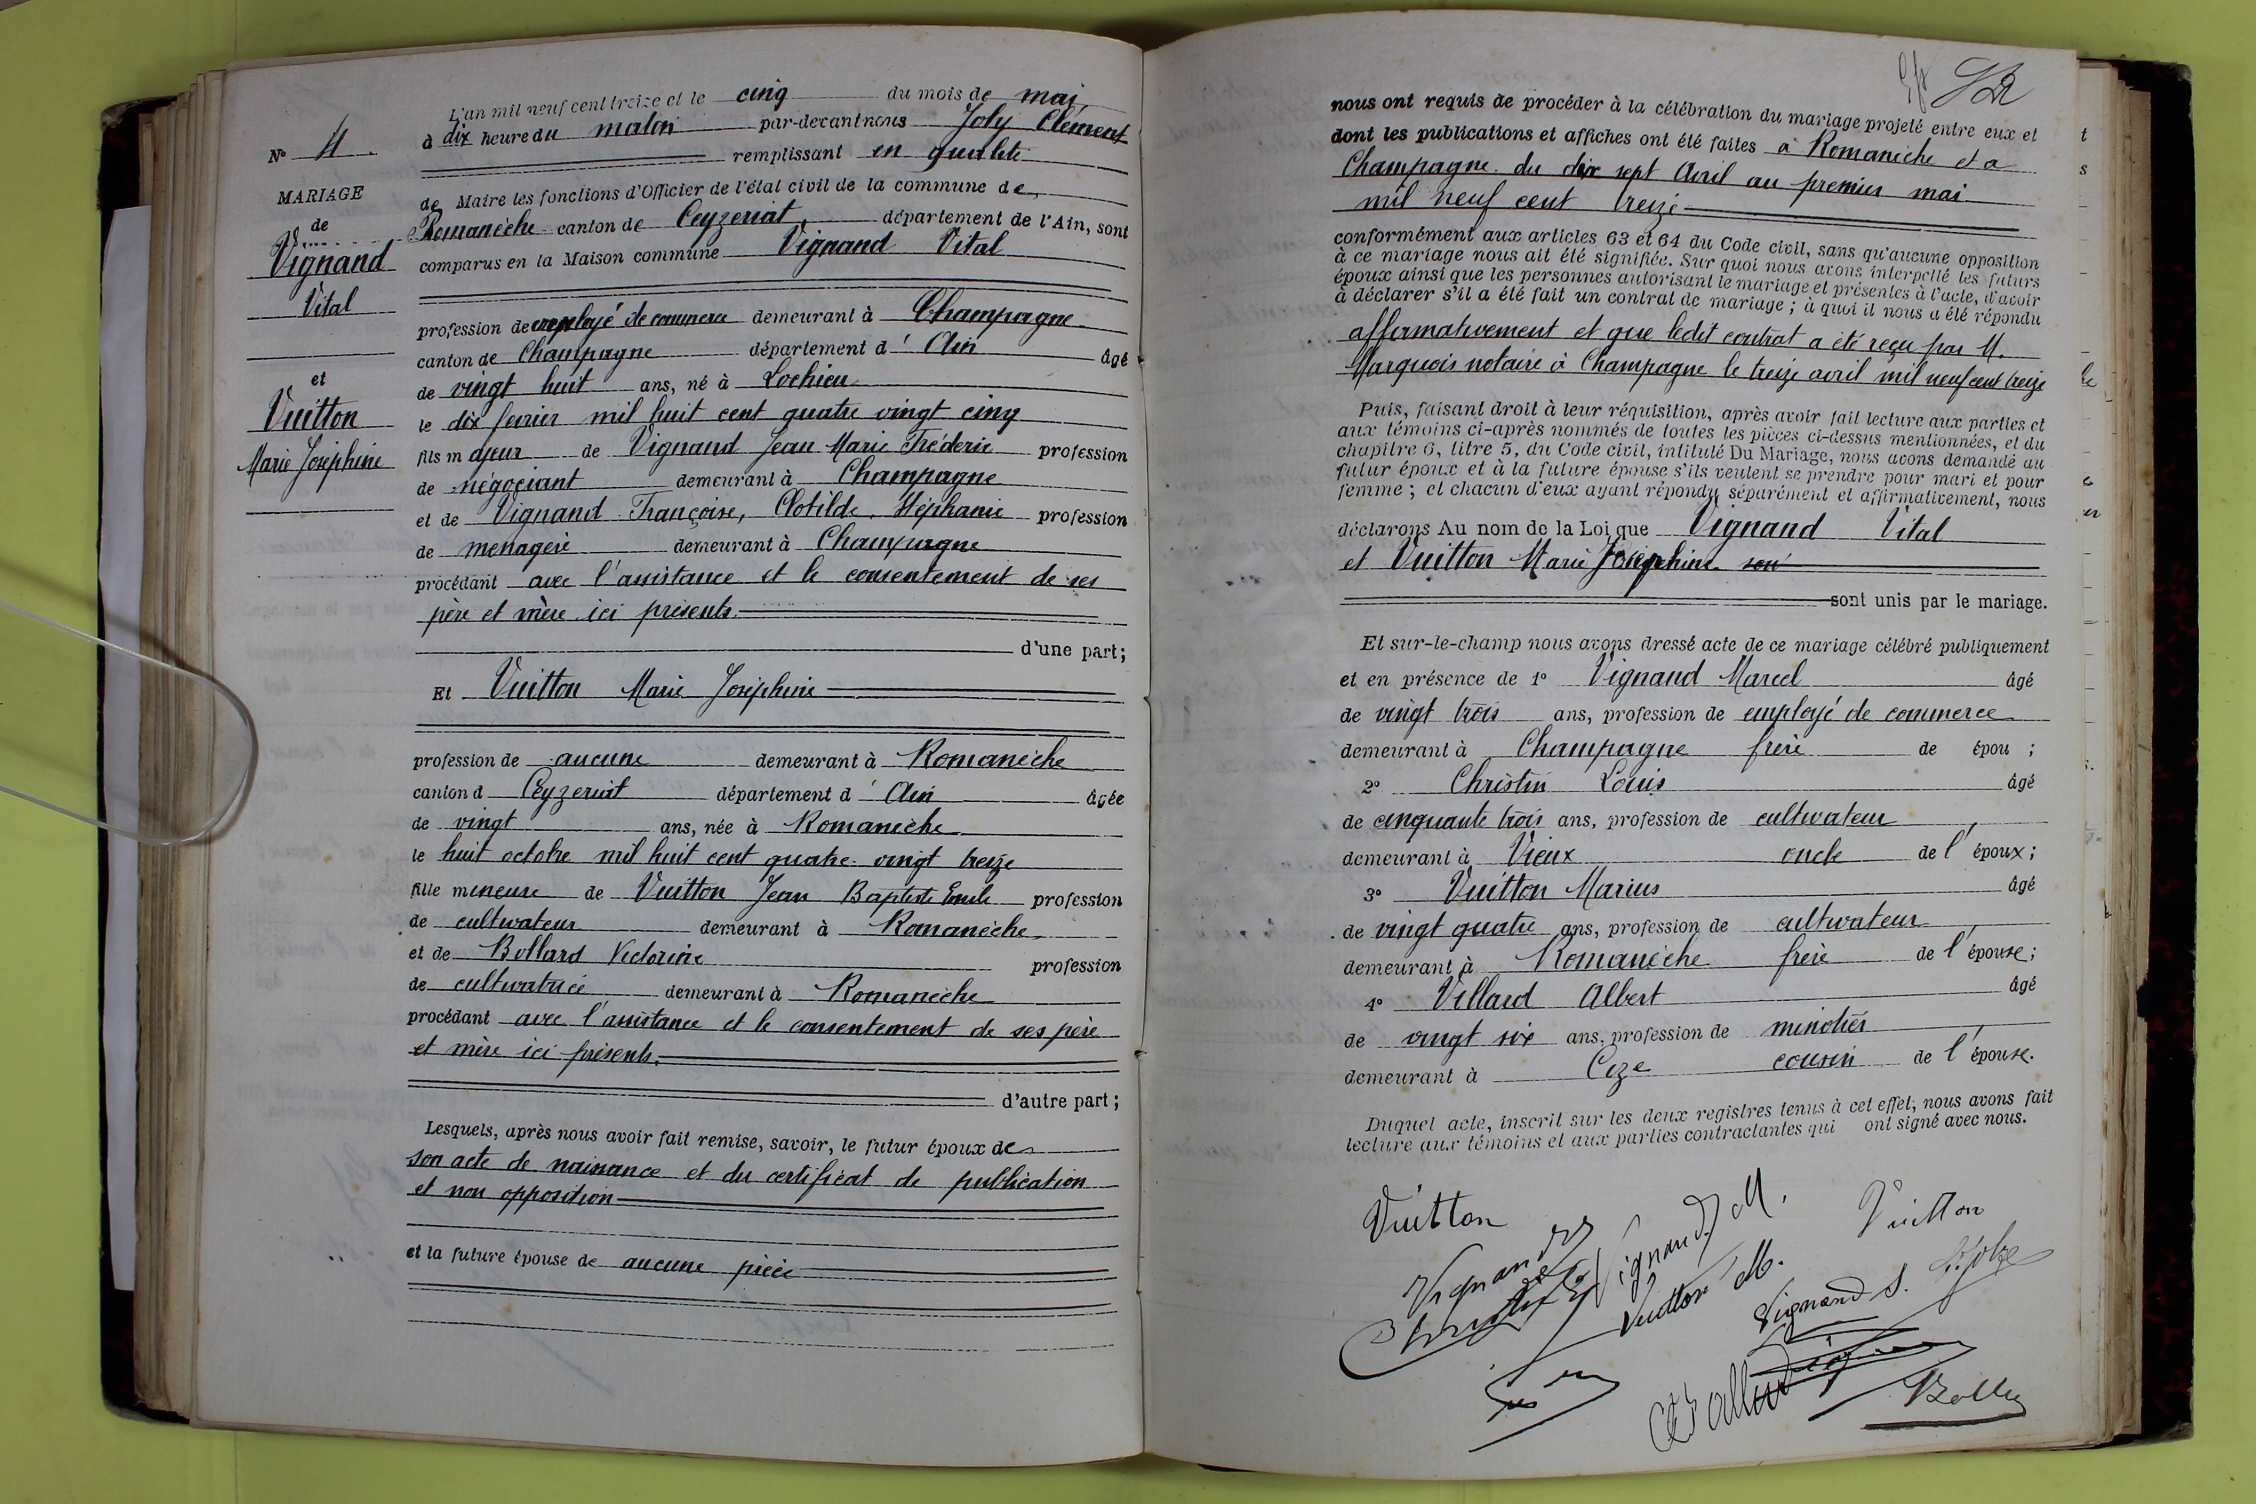 L'an mil neuf cent treize et le cinq du mois de mai
à dix heure du matin par-devant nous Joly Clément
remplissant en qualité
de Maire les fonctions d'Officier de l'état civil de la commune de
Romanèche canton de Ceyzeriat, département de l'Ain, sont
comparus en la Maison commune Vignand Vital
N° 4.
MARIAGE
de
Vignand
Vital
et
Vuitton
Marie Joséphine
profession de employé de commerce demeurant à Champagne
canton de Champagne département d' Ain âgé
de vingt huit ans, né à Lochieu
le dix fevrier mil huit cent quatre vingt cinq
fils majeur de Vignand Jean Marie Fréderic profession
de négociant demeurant à Champagne
et de Vignand Françoise, Clotilde, Stéphanie profession
de menagère demeurant à Champagne
procédant avec l'assistance et le consentement de ses
père et mère ici présents
d'une part;
Et Vuitton Marie Joséphine
profession de aucune demeurant à Romanèche
canton d Ceyzeriat département d' Ain âgée
de vingt ans, née à Romanèche
le huit octobre mil huit cent quatre vingt treize
fille mineure de Vuitton Jean Baptiste Emile profession
de cultivateur demeurant à Romanèche
et de Bollard Victorine profession
de cultivatrice demeurant à Romanèche
procédant avec l'assistance et le consentement de ses père
et mère ici présents.
d'autre part;
Lesquels, après nous avoir fait remise, savoir, le futur époux de
son acte de naissance et du certificat de publication
et non opposition
et la future épouse de aucune pièce
nous ont requis de procéder à la célébration du mariage projeté entre eux et
dont les publications et affiches ont été faites à Romanèche et a
Champagne du dix sept Avril au premier mai
mil neuf cent treize
conformément aux articles 63 et 64 du Code civil, sans qu'aucune opposition
à ce mariage nous ait été signifiée. Sur quoi nous avons interpellé les futurs
époux ainsi que les personnes autorisant le mariage et présentes à l'acte, d'avoir
à déclarer s'il a été fait un contrat de mariage; à quoi il nous a été répondu
affirmativement et que ledit contrat a été reçu par M.
Marquois notaire à Champagne le treize avril mil neuf cent treize
Puis, faisant droit à leur réquisition, après avoir fait lecture aux parties et
aux témoins ci-après nommés de toutes les pièces ci-dessus mentionnées, et du
chapitre 6, titre 5, du Code civil, intitulé Du Mariage, nous avons demandé au
futur époux et à la future épouse s'ils veulent se prendre pour mari et pour
femme; et chacun d'eux ayant répondu séparément et affirmativement, nous
déclarons Au nom de la Loi que Vignand Vital
et Vuitton Marie Joséphine son
sont unis par le mariage.
Et sur-le-champ nous avons dressé acte de ce mariage célébré publiquement
et en présence de 1° Vignand Marcel âgé
de vingt trois ans, profession de employé de commerce
demeurant à Champagne frère de épou ;
2° Christin Louis âgé
de cinquante trois ans, profession de cultivateur
demeurant à Vieux oncle de l' époux;
3° Vuitton Marius âgé
de vingt quatre ans, profession de cultivateur
demeurant à Romanèche frère de l' épouse;
4° Villard Albert âgé
de vingt six ans, profession de minotier
demeurant à Cize cousin de l' épouse.
Duquel acte, inscrit sur les deux registres tenus à cet effet, nous avons fait
lecture aux témoins et aux parties contractantes qui ont signé avec nous.
Vuitton
Vignand
Vignand M.
Vuitton
Vuitton M.
Vignand S.